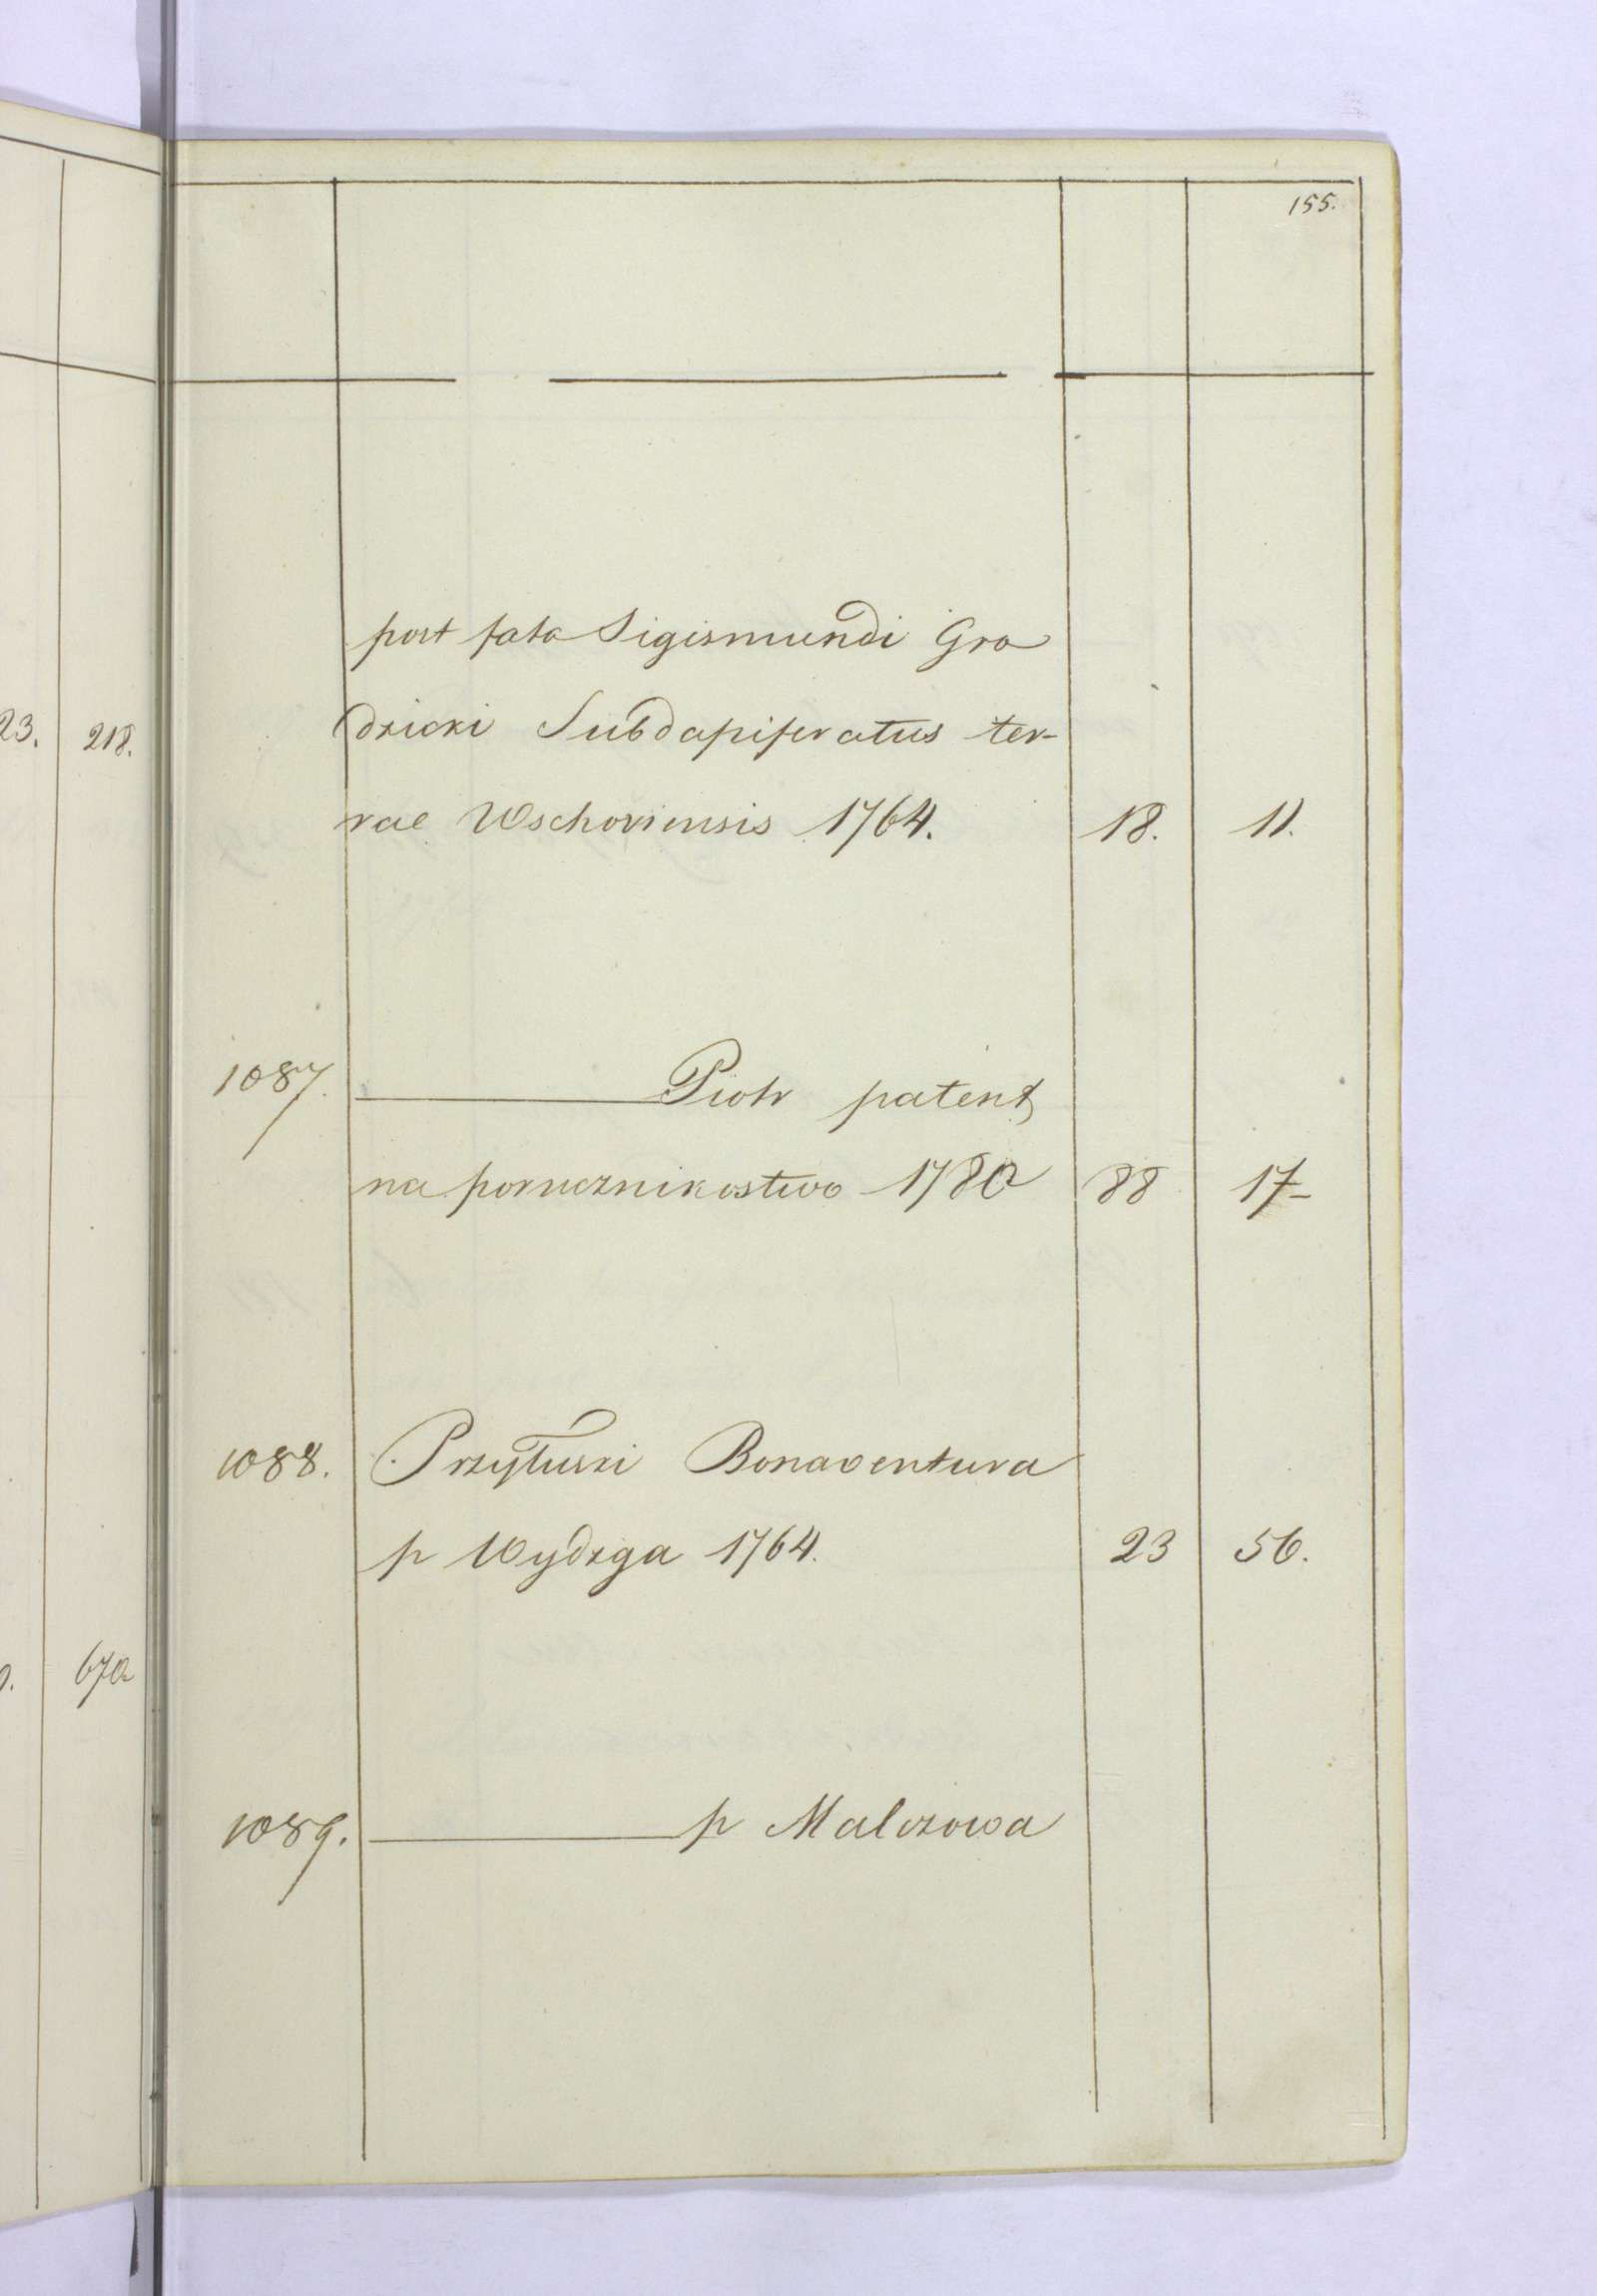 155.
23. 218.
post fata Sigismundi Gro
dzicki Subdapiferatus ter-
rae Wschoviensis 1764. 18. 11.
1087. Piotr patent
na porucznikostwo 1780 88 17-
1088. Przyłuski Bonaventura
p Wydzga 1764. 23 56.
670
1089. p Malczowa